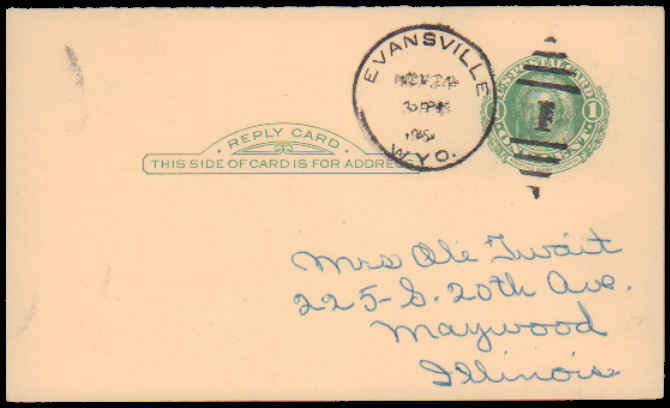 EVANSVILLE
WYO.
U.S. POSTAL CARD
1
REPLY CARD
THIS SIDE OF CARD IS FOR ADDRESS
Mrs Ole Twait
225 - S. 20th Ave.
Maywood
Illinois